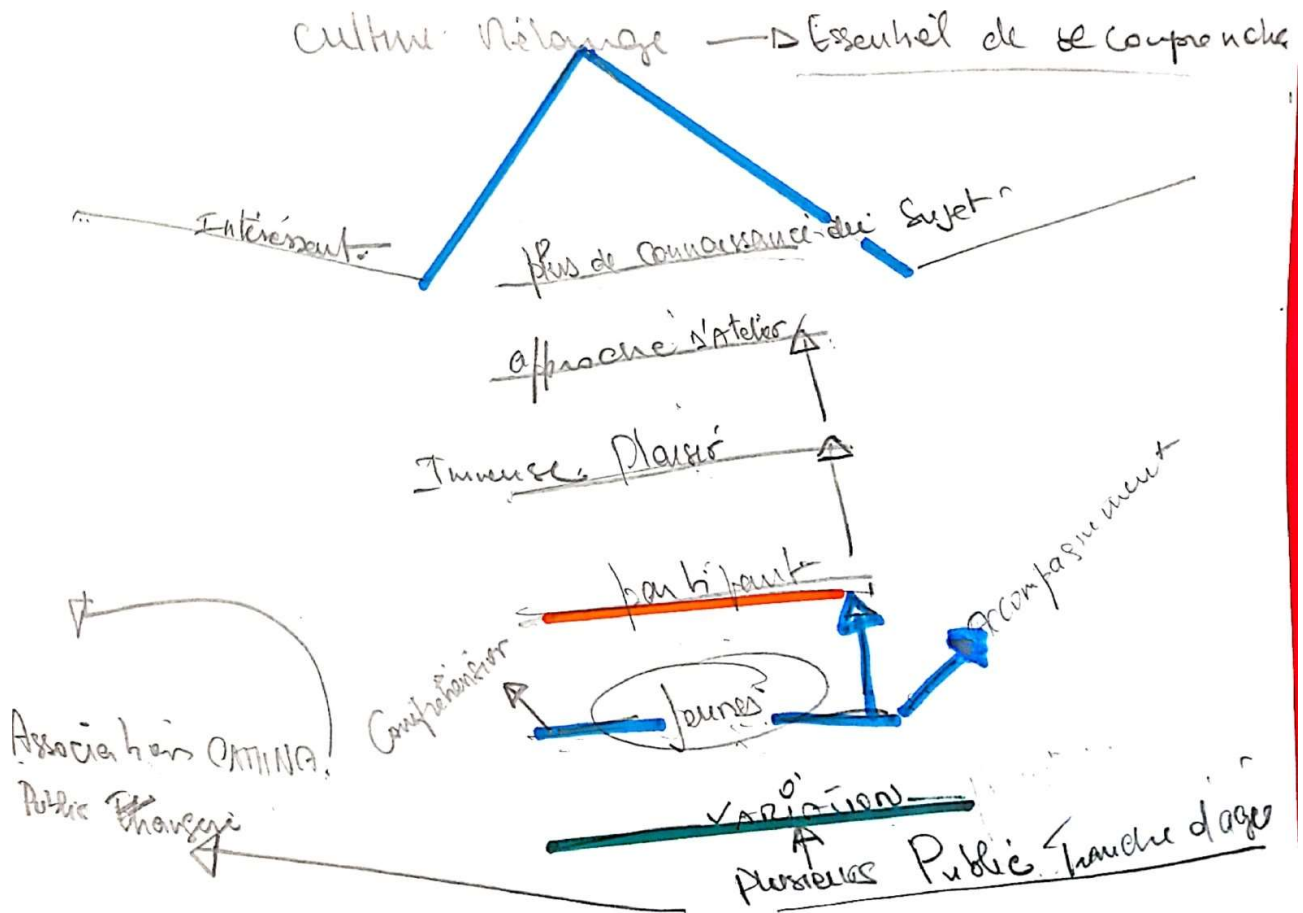 Culture Mélange → Essentiel de se comprendre
Intéressant.
plus de connaissance du Sujet
approche d'Atelier
Immense Plaisir
partipant
Accompagnement
Compréhension
Jeunes
Association
Public
VARIATION
plusieurs Public Tranche d'ages